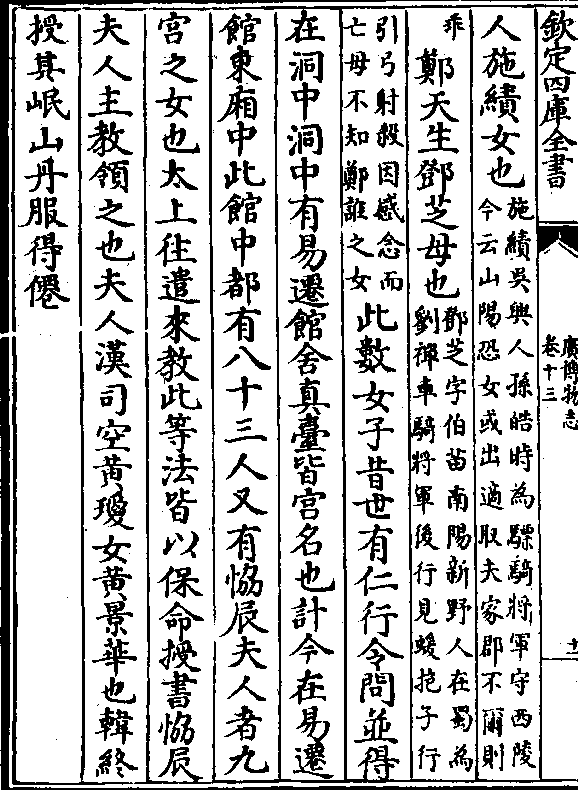 欽定四庫全書
廣博物志
卷十三
人施績女也施績吳興人孫皓時為驃騎將軍守西陵
今云山陽恐女或出適取夫家郡不爾則
乖
鄭天生鄧芝母也鄧芝字伯苗南陽新野人在蜀為
劉禪車騎將軍後行見蝯抱子行
引弓射殺因感念而
亡母不知鄭誰之女
此數女子昔世有仁行令問並得
在洞中洞中有易遷館含真臺皆宮名也計今在易遷
館東廂中此館中都有八十三人又有協辰夫人者九
宮之女也太上往遣來教此等法皆以保命授書協辰
夫人主教領之也夫人漢司空黃瓊女黃景華也韓終
授其岷山丹服得僊